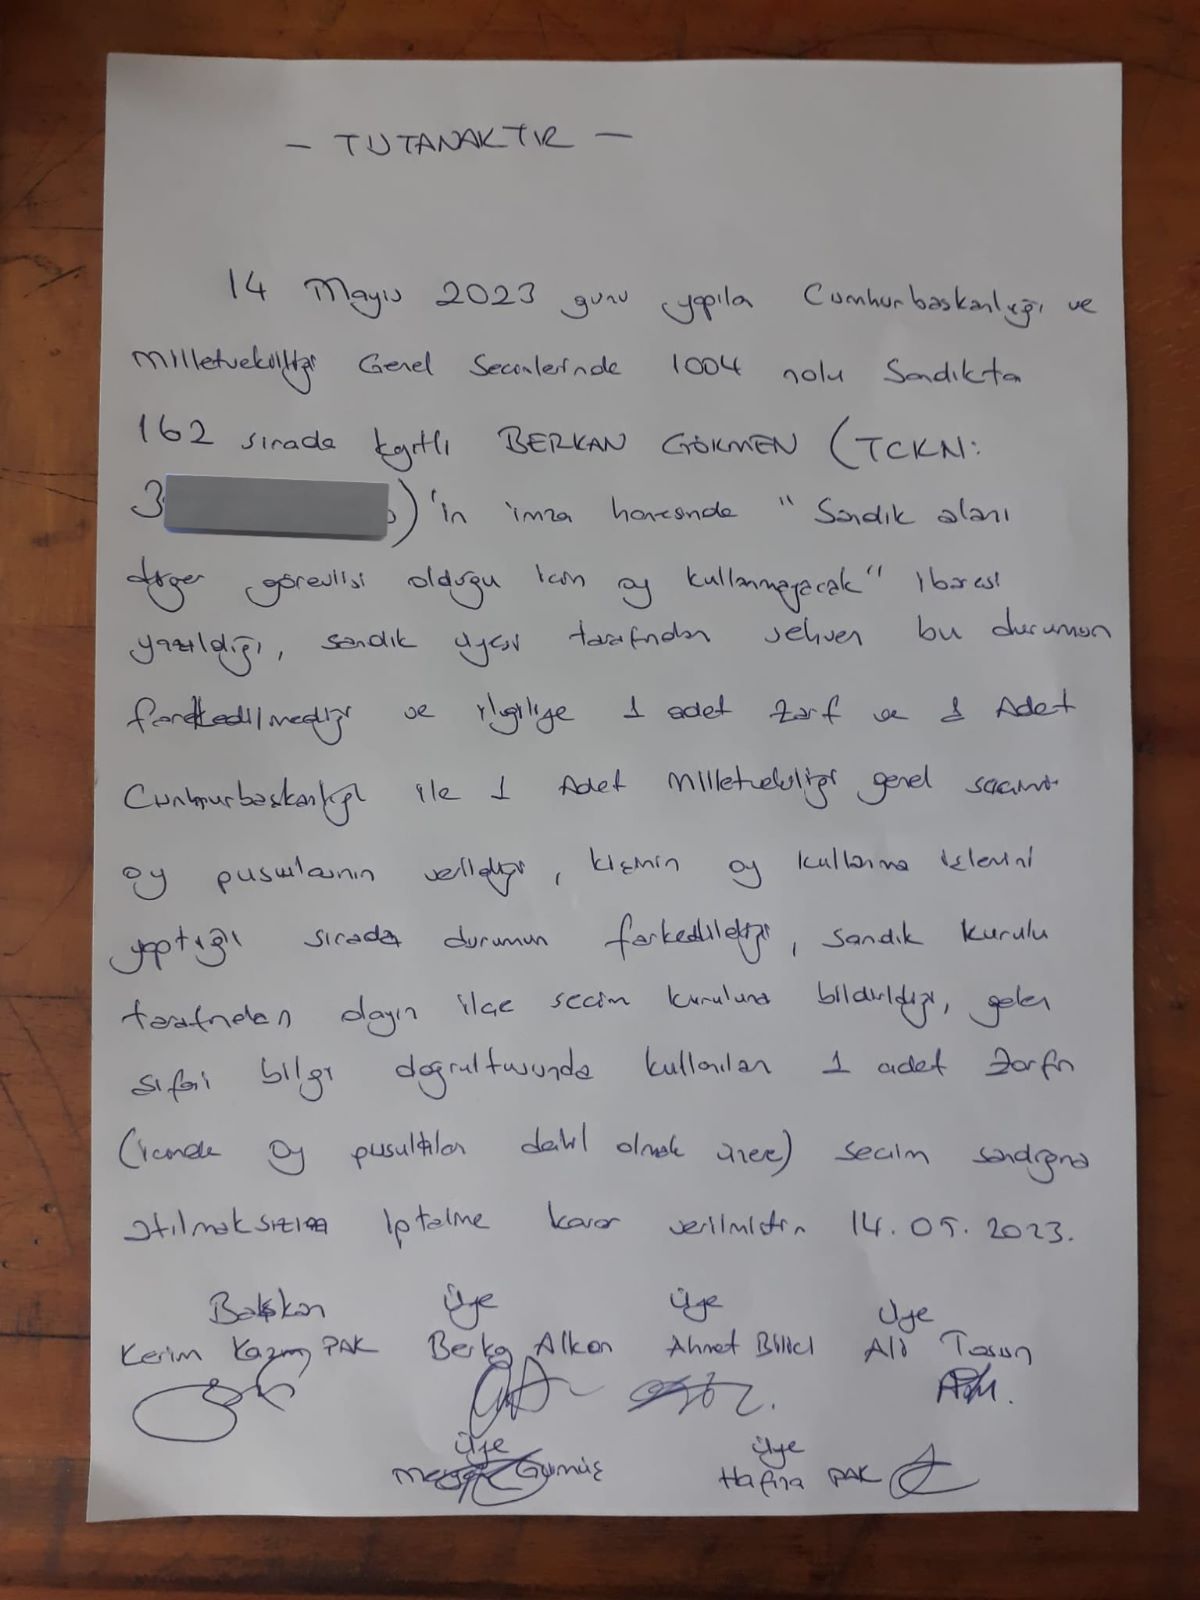 - TUTANAKTIR -
14 Mayıs 2023 günü yapıla Cumhurbaskanlığı ve
Milletvekilliği Genel Secimlerinde 1004 nolu Sandıkta
162 sırada kayıtlı BERKAN GÖKMEN (TCKN:
3 )'in imza hanesinde "Sandık alanı
diğer görevlisi olduğu icin oy kullanmayacak" ibaresi
yazıldığı, sandık üyesi tarafından sehven bu durumun
farkedilmediği ve ilgiliye 1 adet zarf ve 1 Adet
Cumhurbaskanlığı ile 1 Adet Milletvekilliği genel secimi
oy pusulalarının verildiği, kisinin oy kullanma islemini
yaptığı sırada durumun farkedildiği, sandık kurulu
tarafından olayın ilçe secim kuruluna bildirildiği, gelen
sifai bilgi doğrultusunda kullanılan 1 adet zarfın
(icinde oy pusulaları dahil olmak üzere) secim sandığına
atılmaksızın iptaline karar verilmistir. 14.05.2023.
Baskan Üye Üye Üye
Kerim Kazım PAK Berkay Alkan Ahmet Bilici Ali Tosun
Üye Üye
Gümüş Hafize PAK